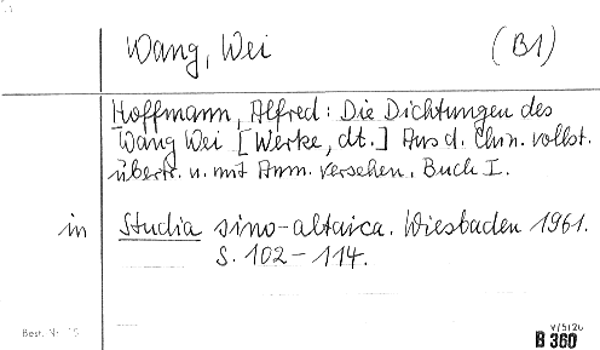 Wang, Wei (B1)
Hoffmann, Alfred: Die Dichtungen des
Wang Wei [Werke, dt.] Aus d. Chin. vollst.
übertr. u. mit Anm. versehen. Buch I.
in Studia sino-altaica. Wiesbaden 1961.
S. 102-114.
V/5120
Best. Nr.
B 360